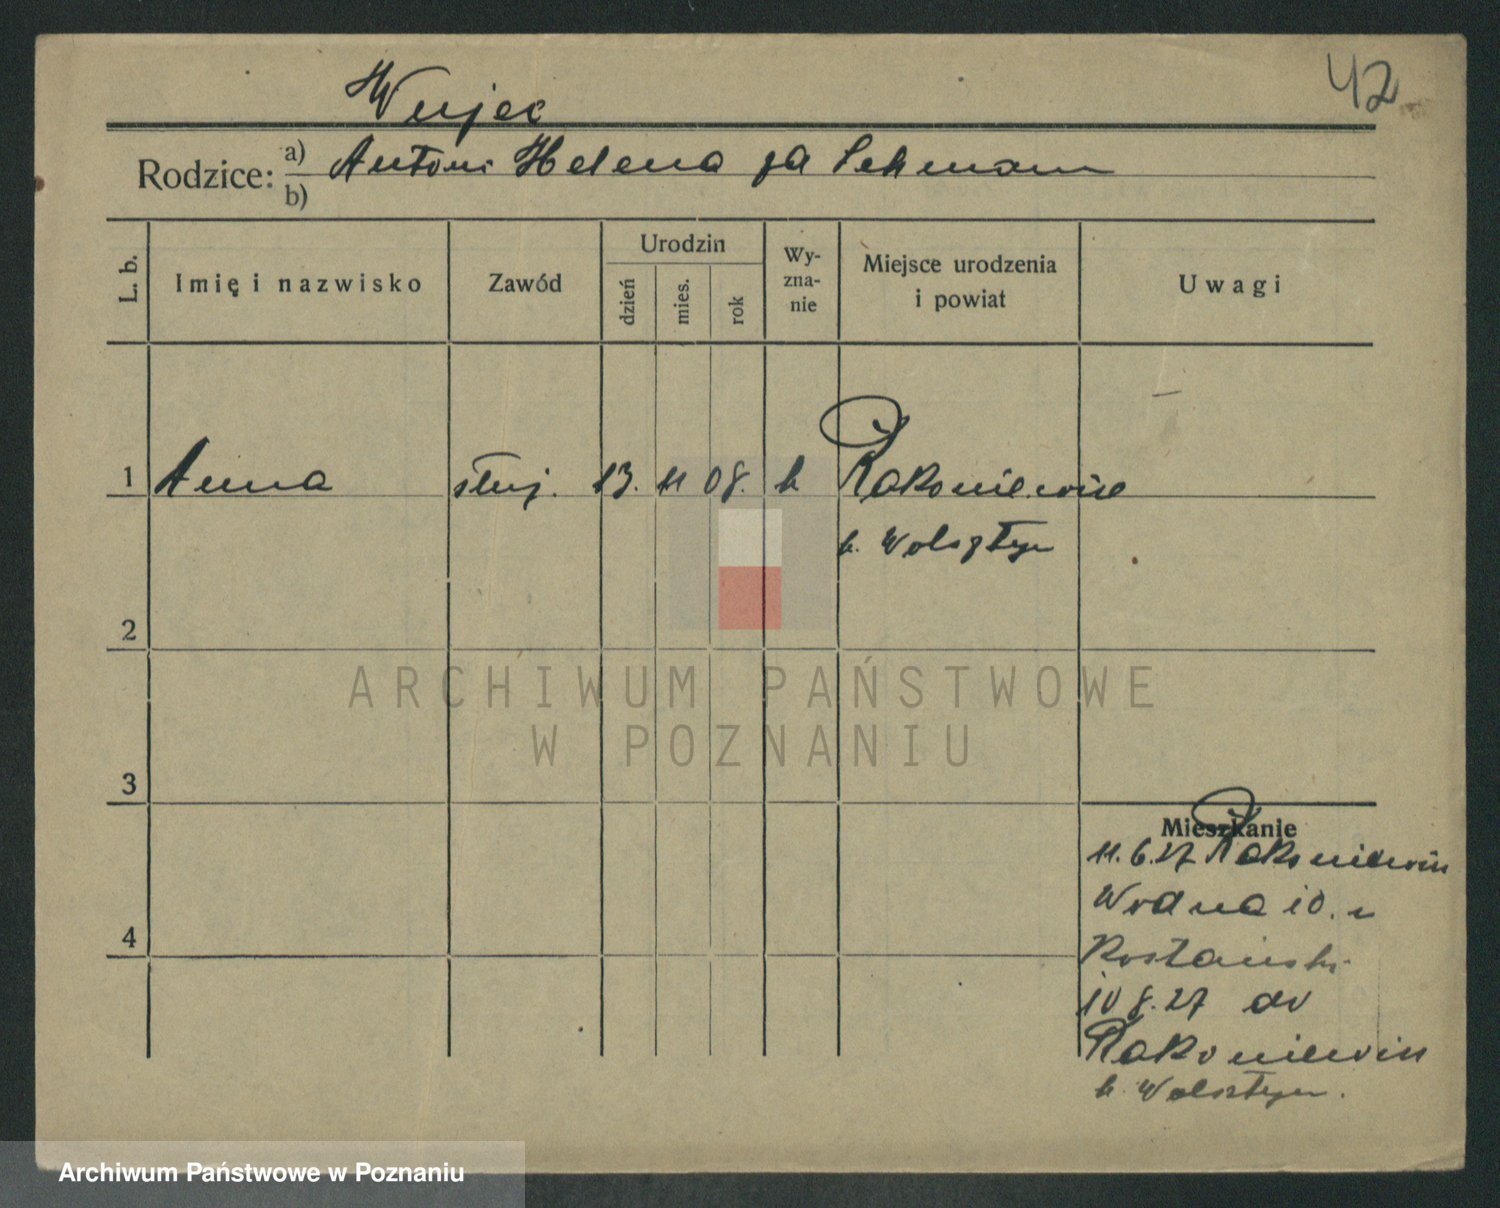 42
Wujec
Rodzice: a) Antoni Helena za Lehmann
b)
L. b. Imię i nazwisko Zawód Urodzin dzień mies. rok Wy-zna-nie Miejsce urodzenia i powiat Uwagi
1 Anna służ. 13. 11 08. k Rakoniewice
p. Wolsztyn
2
3
4
Mieszkanie
11.6.27 Rakoniewice
Wodna 10. u
10 8.27 do
Rakoniewice
p. Wolsztyn.
ARCHIWUM PAŃSTWOWE
W POZNANIU
Archiwum Państwowe w Poznaniu